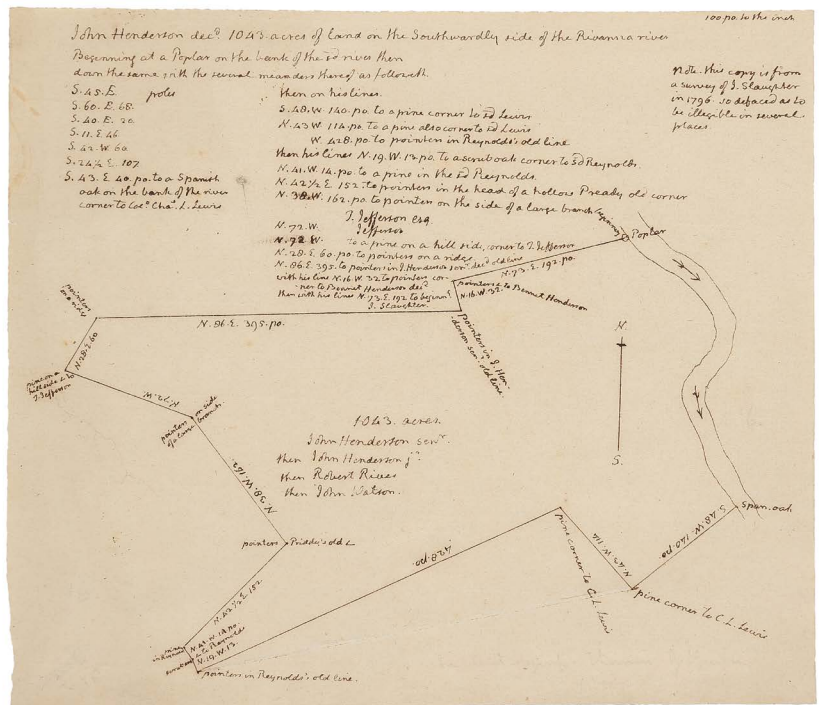 100.po. to the inch
John Henderson decd. 1043. acres of land on the Southwardly side of the Rivanna river
Beginning at a Poplar on the bank of the sd river then
down the same with the several meanders thereof as followeth.
S. 45. E. poles
S. 60. E. 68.
S. 40. E. 20.
S. 11. E 46
S. 42. W. 60.
S. 24½ E. 107
S. 43. E 40. po. to a Spanish
oak on the bank of the river
corner to Colo. Chas. L. Lewis
then on his lines.
S. 48. W. 140. po. to a pine corner to sd Lewis
N. 43 W 114. po. to a pine also corner to sd Lewis
W. 428. po to pointers in Reynolds's old line
then his lines N. 19. W. 12. po. to a scrub oak corner to sd Reynolds.
N. 41. W. 14. po. to a pine in the sd Reynolds.
N. 42½ E 152. to pointers in the head of a hollow Pready old corner
N. 38. W. 162. po to pointers on the side of a large branch
T. Jefferson esq.
N. 72. W. Jefferson
N. 72 W. to a pine on a hill side, corner to T. Jefferson
N. 28. E. 60. po. to pointers on a ridge
N. 86. E. 395. to pointers in J. Henderson senr. decd old line
with his line N. 16. W. 32 to pointers cor-
ner to Bennet Henderson decd
then with his lines N. 73. E. 192 to beginng
J. Slaughter.
Note. this copy is from
a survey of J. Slaughter
in 1796. so defaced as to
be illegible in several
places.
beginning
Poplar
N. 73. E. 192. po.
pointers c to Bennet Henderson
N. 16. W. 32.
pointers in J. Hen-
derson senr. old line
pointers
on a ridge
N. 86. E. 395. po.
N. 28. E. 60
pine on a
hill side c to
T. Jefferson
N. 72. W.
pointers on side
of a large branch
N. 38. W. 162.
1043. acres.
John Henderson senr.
then John Henderson jr.
then Robert Rives
then John Watson.
N.
S.
Span. oak
S. 48. W. 140. po
N. 43. W. 114
pine corner to C. L. Lewis
pine corner to C. L. Lewis
428. po.
pointers Priddy's old L
N. 42½ E. 152.
N. 41. W. 14. po.
c to Reynolds
N. 19. W. 12.
pointers in Reynolds's old line.